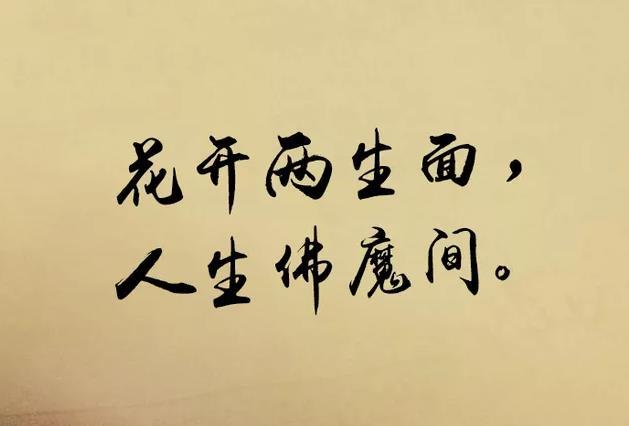 花开两生面，
人生佛魔间。